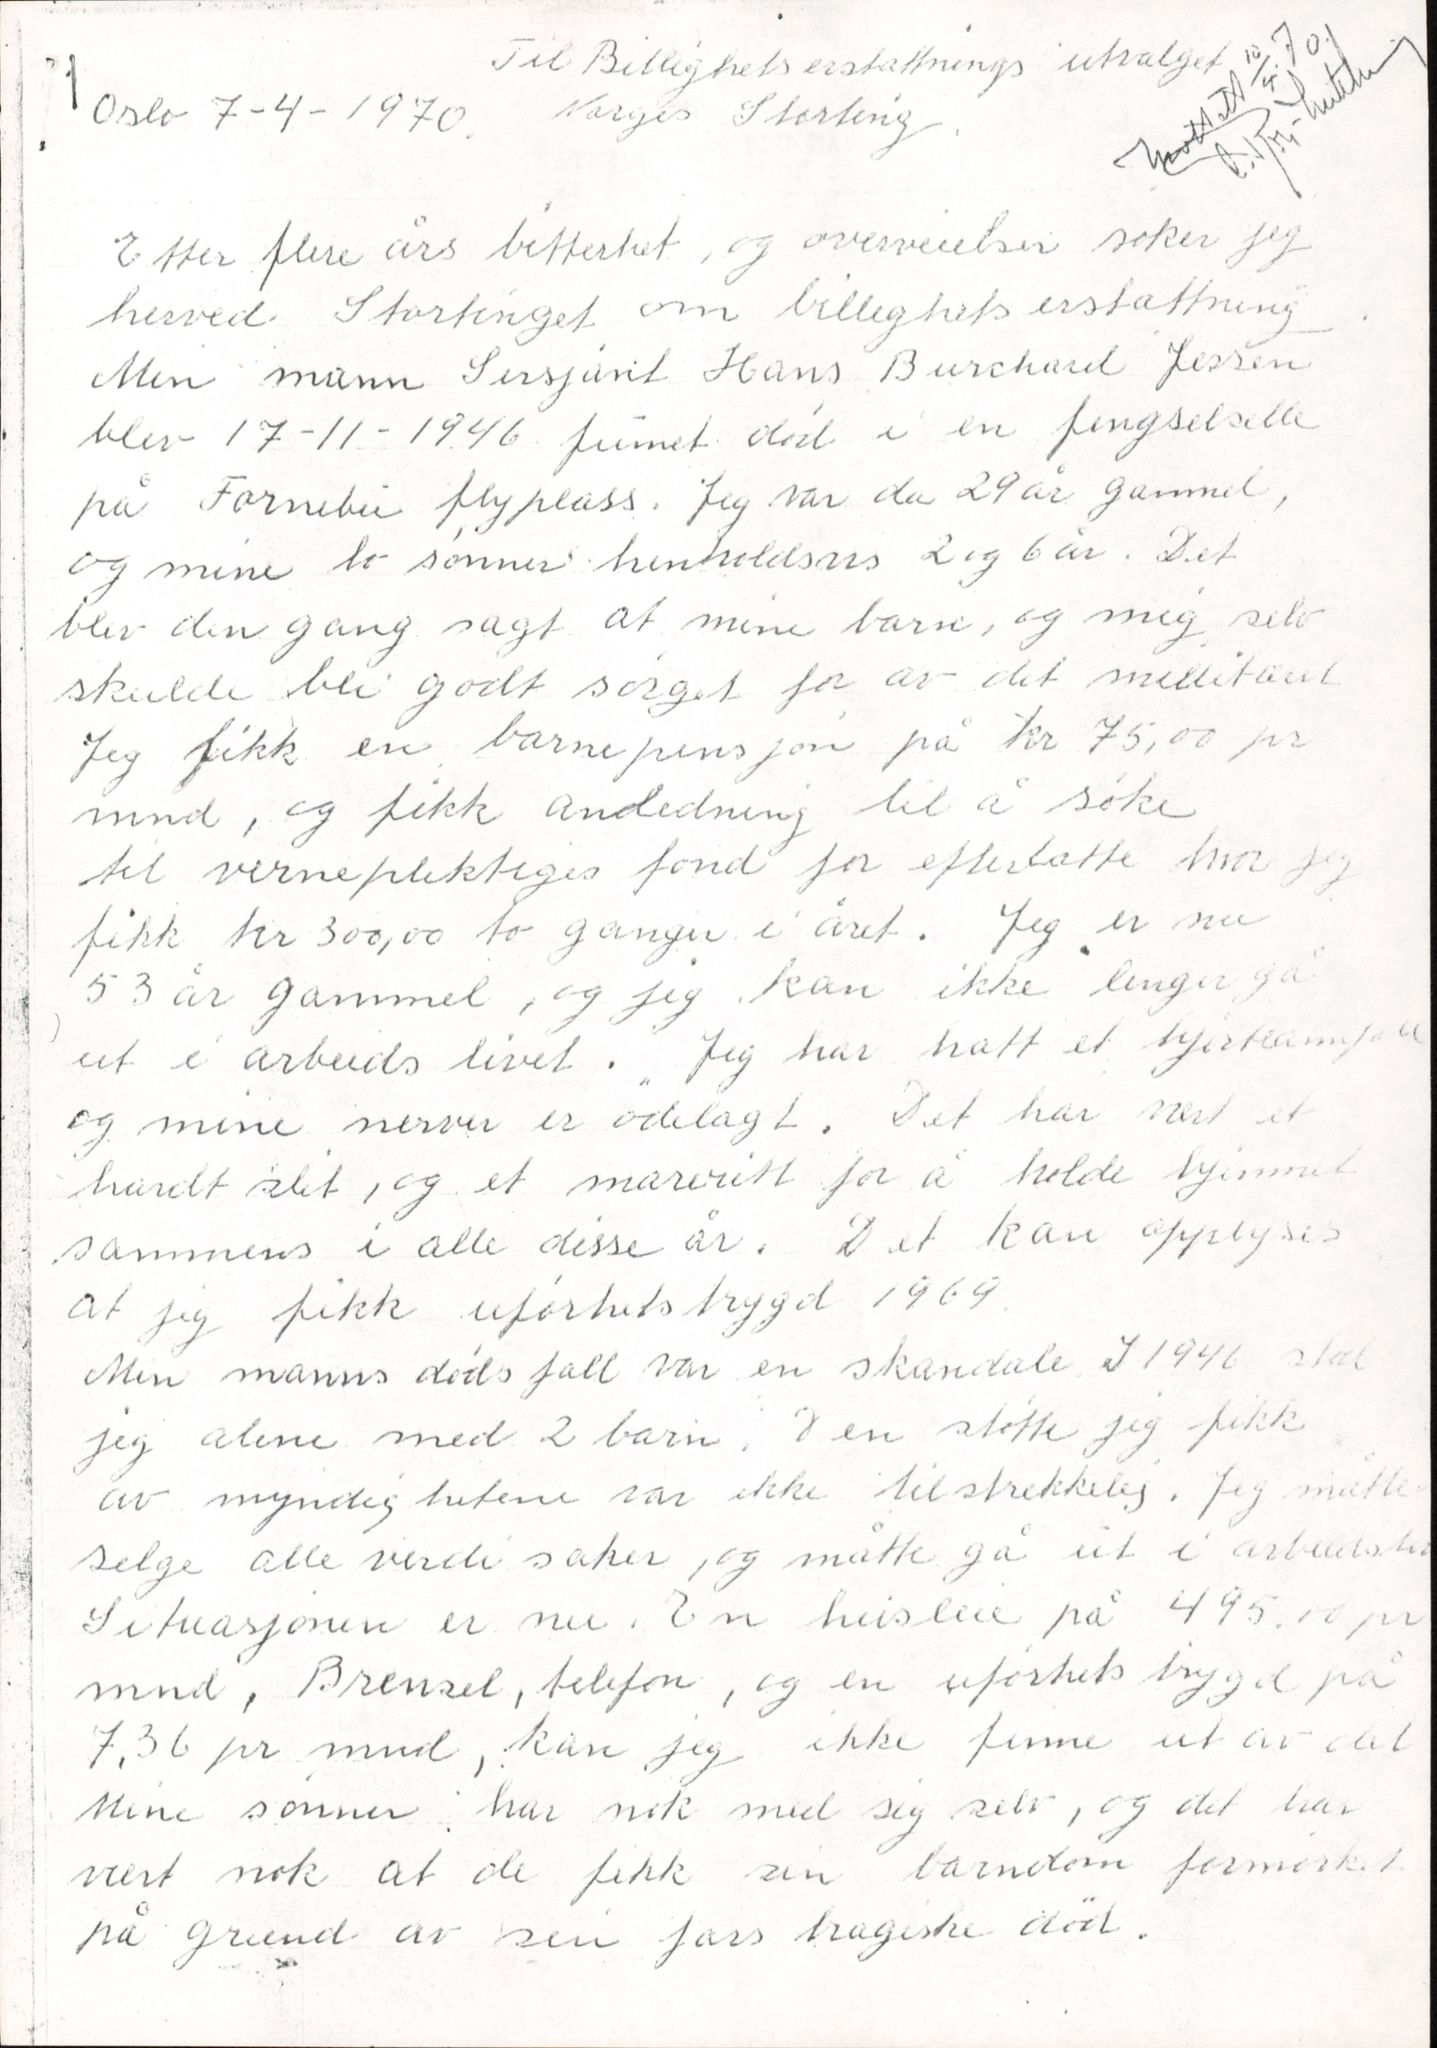 1
Til Billighetserstattnings utvalget
Mottatt 10/4.70.
Oslo 7-4-1970. Norges Storting.
Etter flere års bitterhet, og overveielser søker jeg
herved Stortinget om billeghets erstattning.
Min mann Sersjant Hans Burchard Jessen
blev 17-11-1946 funnet død i en fengselselle
på Fornebu flyplass. Jeg var da 29 år gammel,
og mine to sønner henholdsvis 2 og 6 år. Det
blev den gang sagt at mine barn, og mig selv
skulde bli godt sørget for av det millitæret
Jeg fikk en barnepensjon på kr 75,00 pr
mnd, og fikk andledning til å søke
til verneplektiges fond for efterlatte hvor jeg
fikk kr 300,00 to ganger i året. Jeg er nu
53 år gammel, og jeg kan ikke lenger gå
ut i arbeids livet. Jeg har hatt et hjerteannfall
og mine nerver er ødelagt. Det har vert et
hardt slit, og et mareritt for å holde hjemmet
sammens i alle disse år. Det kan opplyses
at jeg fikk uførhetstrygd 1969.
Min manns dødsfall var en skandale. I 1946 stod
jeg alene med 2 barn. Den støtte jeg fikk
av myndighetene var ikke tilstrekkelig. Jeg måtte
selge alle verdi saker, og måtte gå ut i
Situasjonen er nu. En husleie på 495.00 pr
mnd, Brensel, telefon, og en uførhets trygd på
7,36 pr mnd, kan jeg ikke finne ut av det
Mine sønner har nok med sig selv, og det har
vært nok at de fikk sin barndom formørket
på grund av sin fars tragiske død.